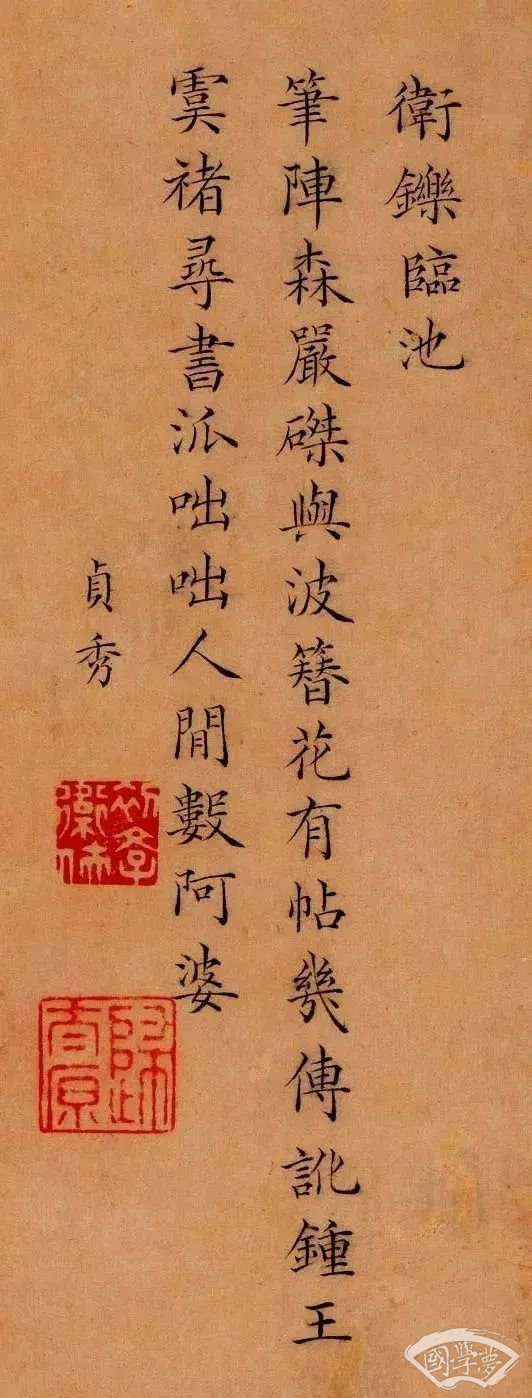 衛鑠臨池
筆陣森嚴磔與波簪花有帖幾傳訛鍾王
虞褚尋書派咄咄人閒數阿婆
貞秀
國學夢